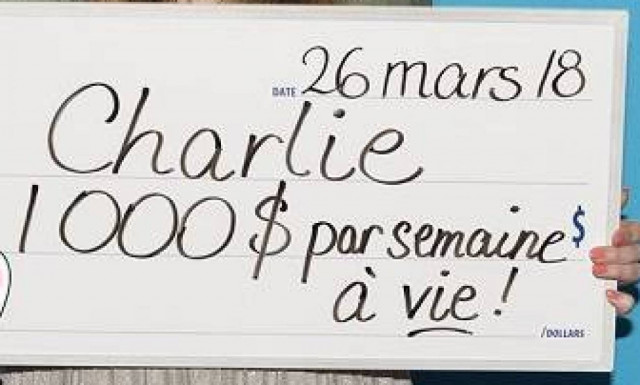 DATE 26 mars 18
Charlie
1000 $ par semaine $
à vie !
/DOLLARS